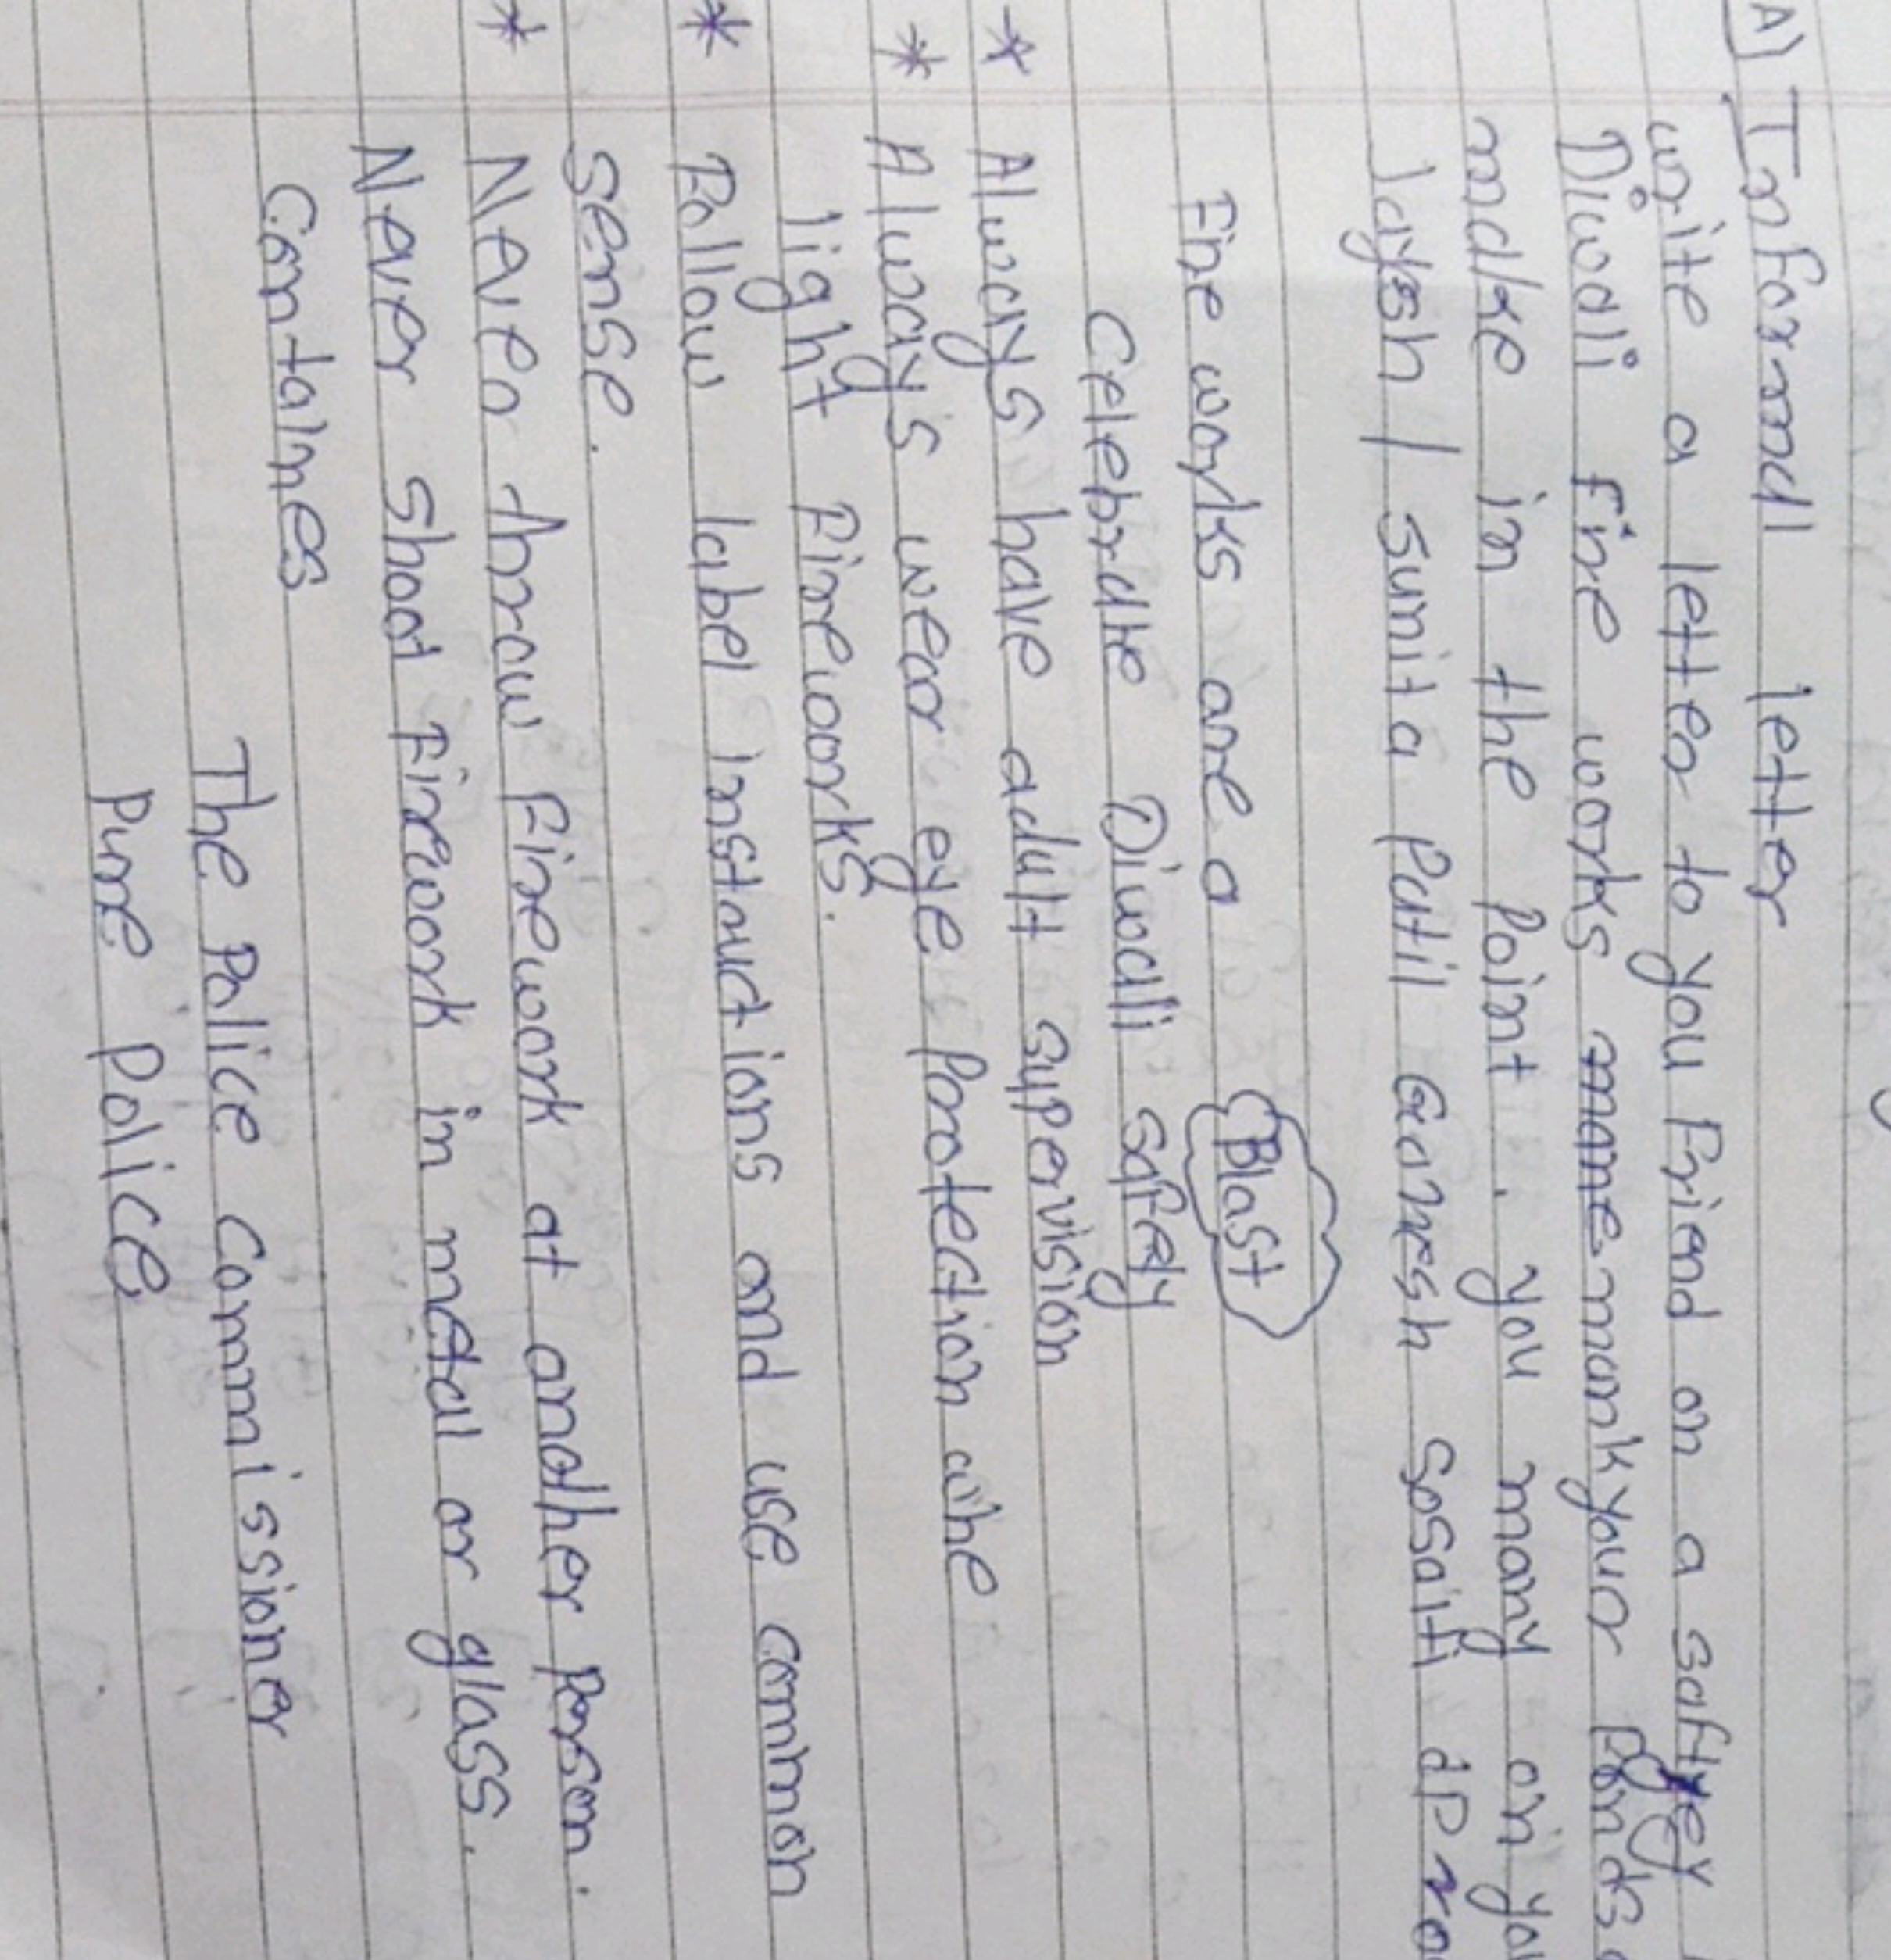 A) Informal letter
write a letter to you Friend on a saftyey
Diwali fire works mank your Points
make in the Point . you many on you
Jaysh / sumit a Patil Ganesh Sosaiti
Fire works are a Blast
Celebrate Diwali safety
* Always have adult supervision
* Always wear eye Protection whe
light Fireworks.
* Follow label instructions and use common
sense.
* Never throw Firework at another Person.
Never shoot Firework in metal or glass.
Containes
The Police Commissioner
Pune Police